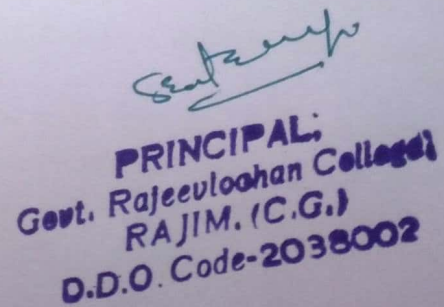 PRINCIPAL;
Govt. Rajeevloohan College
RAJIM. (C.G.)
D.D.O. Code-2038002